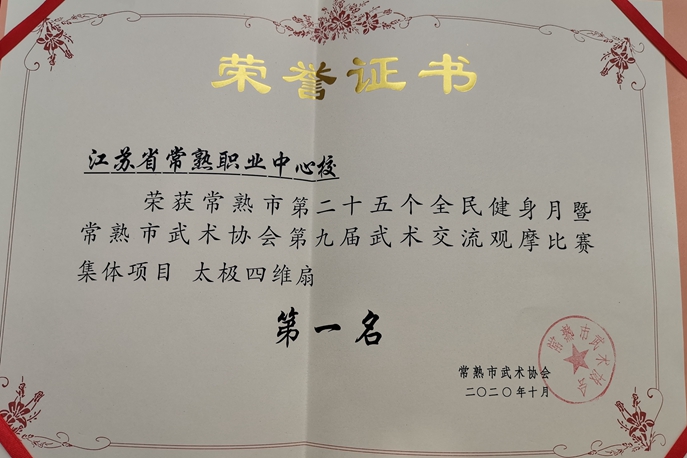 荣誉证书
江苏省常熟职业中心校
荣获常熟市第二十五个全民健身月暨
常熟市武术协会第九届武术交流观摩比赛
集体项目 太极四维扇
第一名
常熟市武术协会
二〇二〇年十月
常熟市武术协会